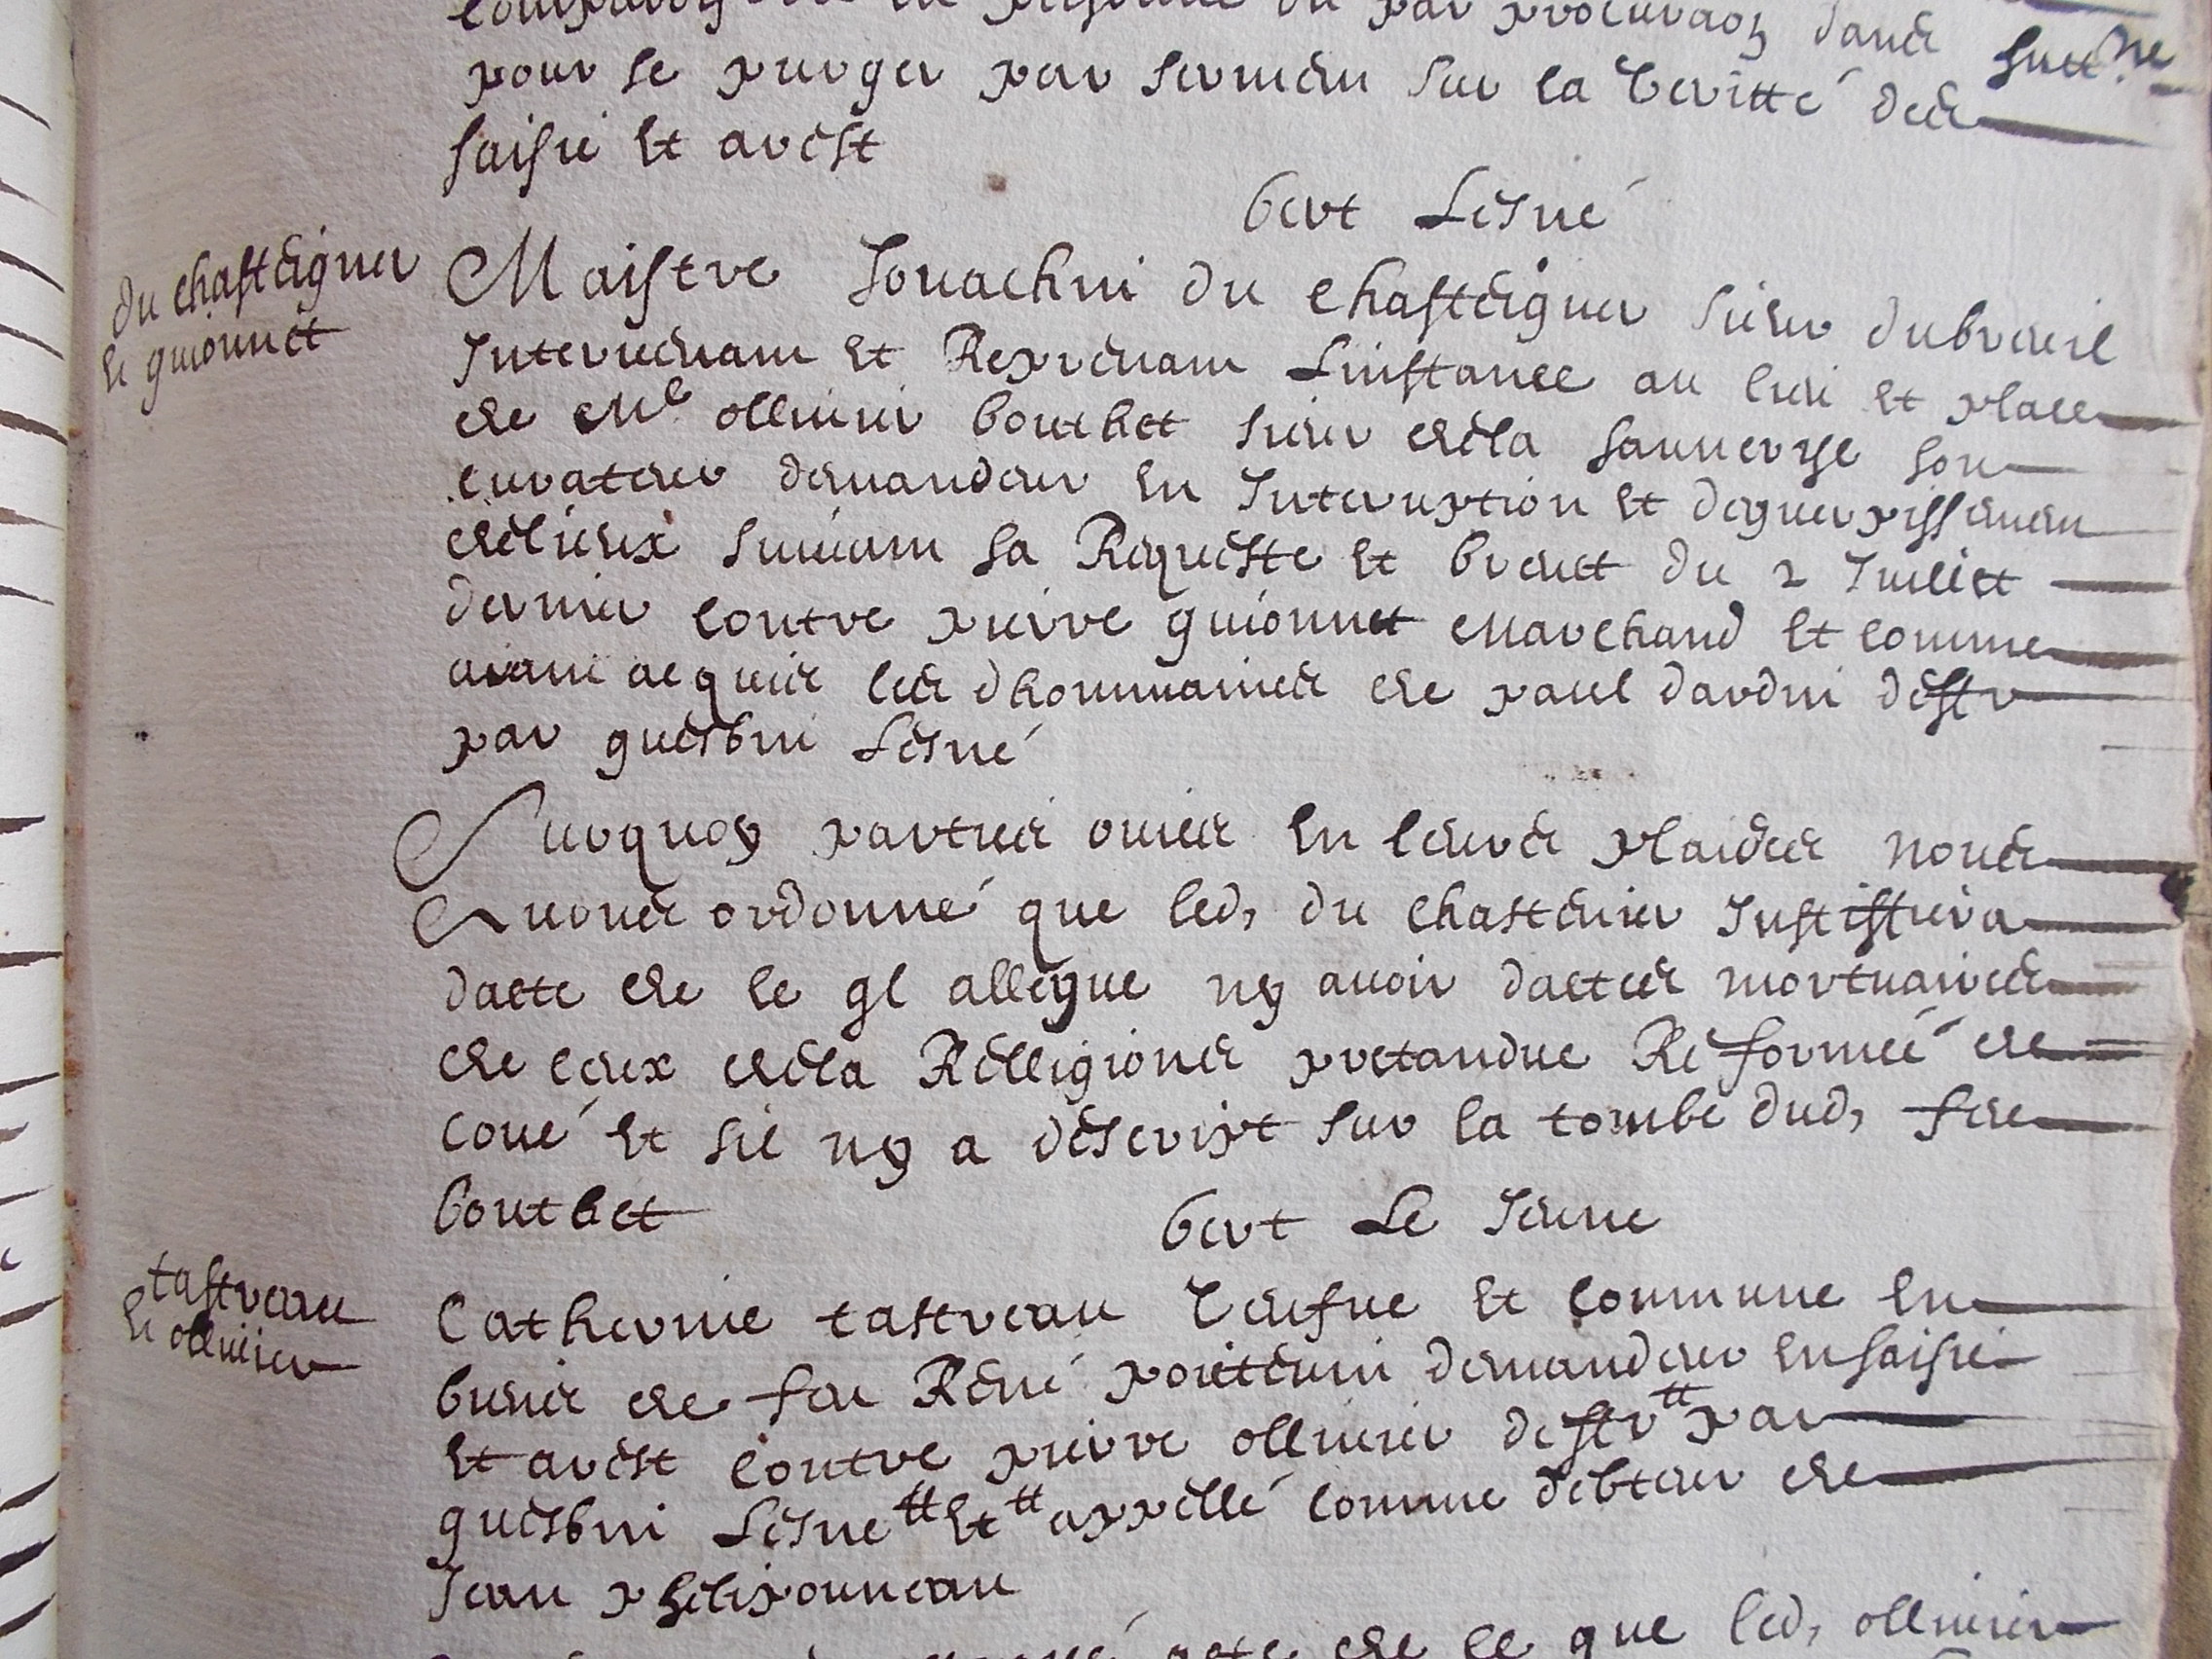 pour se purger par sermen sur la veritté des
saisie et arest
bert Lesné
du chasteigner
et guionnet
Maistre Jouachin du chasteigner sieur dubreuil
Intervenant et Reprenant Linstance au lieu et place
de Me ollivier bouthet sieur de la
curateur demandeur en Interuption et deguerpissemen
de lieux suivant sa Requeste et brevet du 2 Juillet
dernier contre pierre guionnet marchand et comme
aiant acquis les dhommaines de paul dardin destr
par guesbin Lesné
Surquoy parties ouies en leurs plaides nous
Avons ordonné que led, du chastenier Justiffiera
dacte de ce ql allegue ny avoir dactes mortuaires
de ceux de la Relligions pretandue Reformée de
coué et sil ny a descript sur la tombe dud, feu
bouthet
bert Le Jeune
tastreau
et ollivier
Catherine tastreau veufue et commune en
biens de feu René poitevin demandeur en saisie
et arest contre pierre ollivier destr par
guesbin Lesne et appellé comme debteur de
Jean phelipouneau
acte de ce que led, ollivier